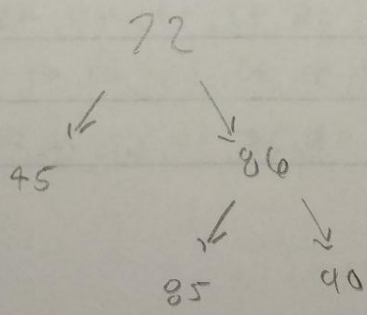 72
45
86
85
90